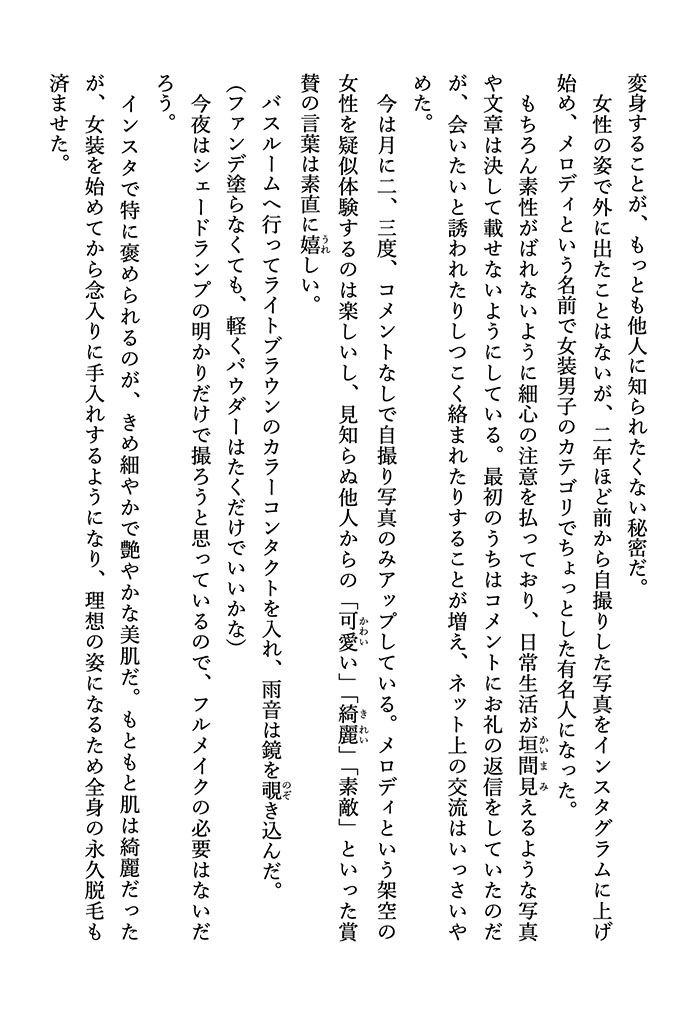 変身することが、もっとも他人に知られたくない秘密だ。
　女性の姿で外に出たことはないが、二年ほど前から自撮りした写真をインスタグラムに上げ
始め、メロディという名前で女装男子のカテゴリでちょっとした有名人になった。
　もちろん素性がばれないように細心の注意を払っており、日常生活が垣間見えるような写真
や文章は決して載せないようにしている。最初のうちはコメントにお礼の返信をしていたのだ
が、会いたいと誘われたりしつこく絡まれたりすることが増え、ネット上の交流はいっさいや
めた。
　今は月に二、三度、コメントなしで自撮り写真のみアップしている。メロディという架空の
女性を疑似体験するのは楽しいし、見知らぬ他人からの「可愛い」「綺麗」「素敵」といった賞
賛の言葉は素直に嬉しい。
　バスルームへ行ってライトブラウンのカラーコンタクトを入れ、雨音は鏡を覗き込んだ。
（ファンデ塗らなくても、軽くパウダーはたくだけでいいかな）
　今夜はシェードランプの明かりだけで撮ろうと思っているので、フルメイクの必要はないだ
ろう。
　インスタで特に褒められるのが、きめ細やかで艶やかな美肌だ。もともと肌は綺麗だった
が、女装を始めてから念入りに手入れするようになり、理想の姿になるため全身の永久脱毛も
済ませた。